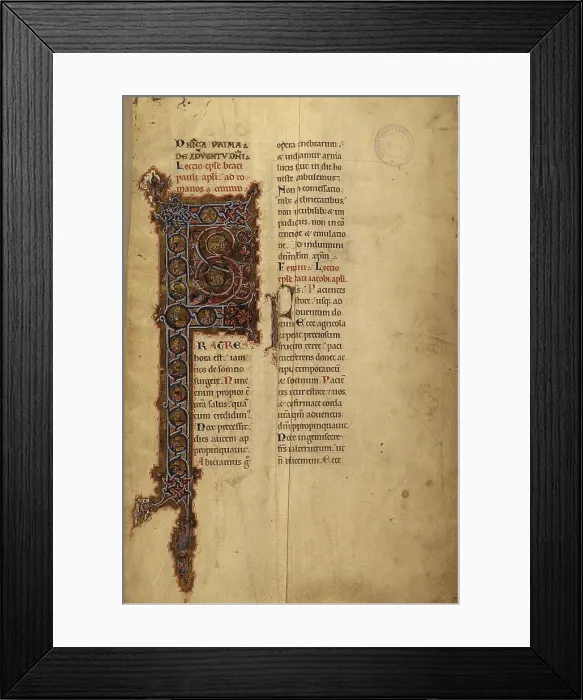 DNICA PRIMA
DE ADVENTV DNI
Lectio eple beati
pauli apli. ad ro
manos
RATRES
hora est. iam
nos de somno
surgere. Nunc
enim propior ē
nrā salus. quā
cum credidim
Nox precessit.
dies autem ap
propinquauit.
Abiciamus g
opera tenebrarum.
& induamur arma
lucis. sicut in die ho
neste ambulemus.
Non in comessatio
nib; & ebrietatibus.
non in cubilib; & im
pudicitiis. non in cō
tentione & emulatio
ne. sed induimini
dnm ihm xpm.
Feria. Lectio
eple beati iacobi apli.
Pacientes
estote. usq; ad
aduentum do
mini. Ecce agricola
expectat preciosum
fructum terre. paci
enter ferens donec ac
cipiat temporaneum
& serotinum. Pacien
tes estote & uos.
& confirmate corda
uestra qm aduentus
dni appropinquauit.
Nolite ingemiscere
frs in alterutrum. ut
n iudicemini. Ecce